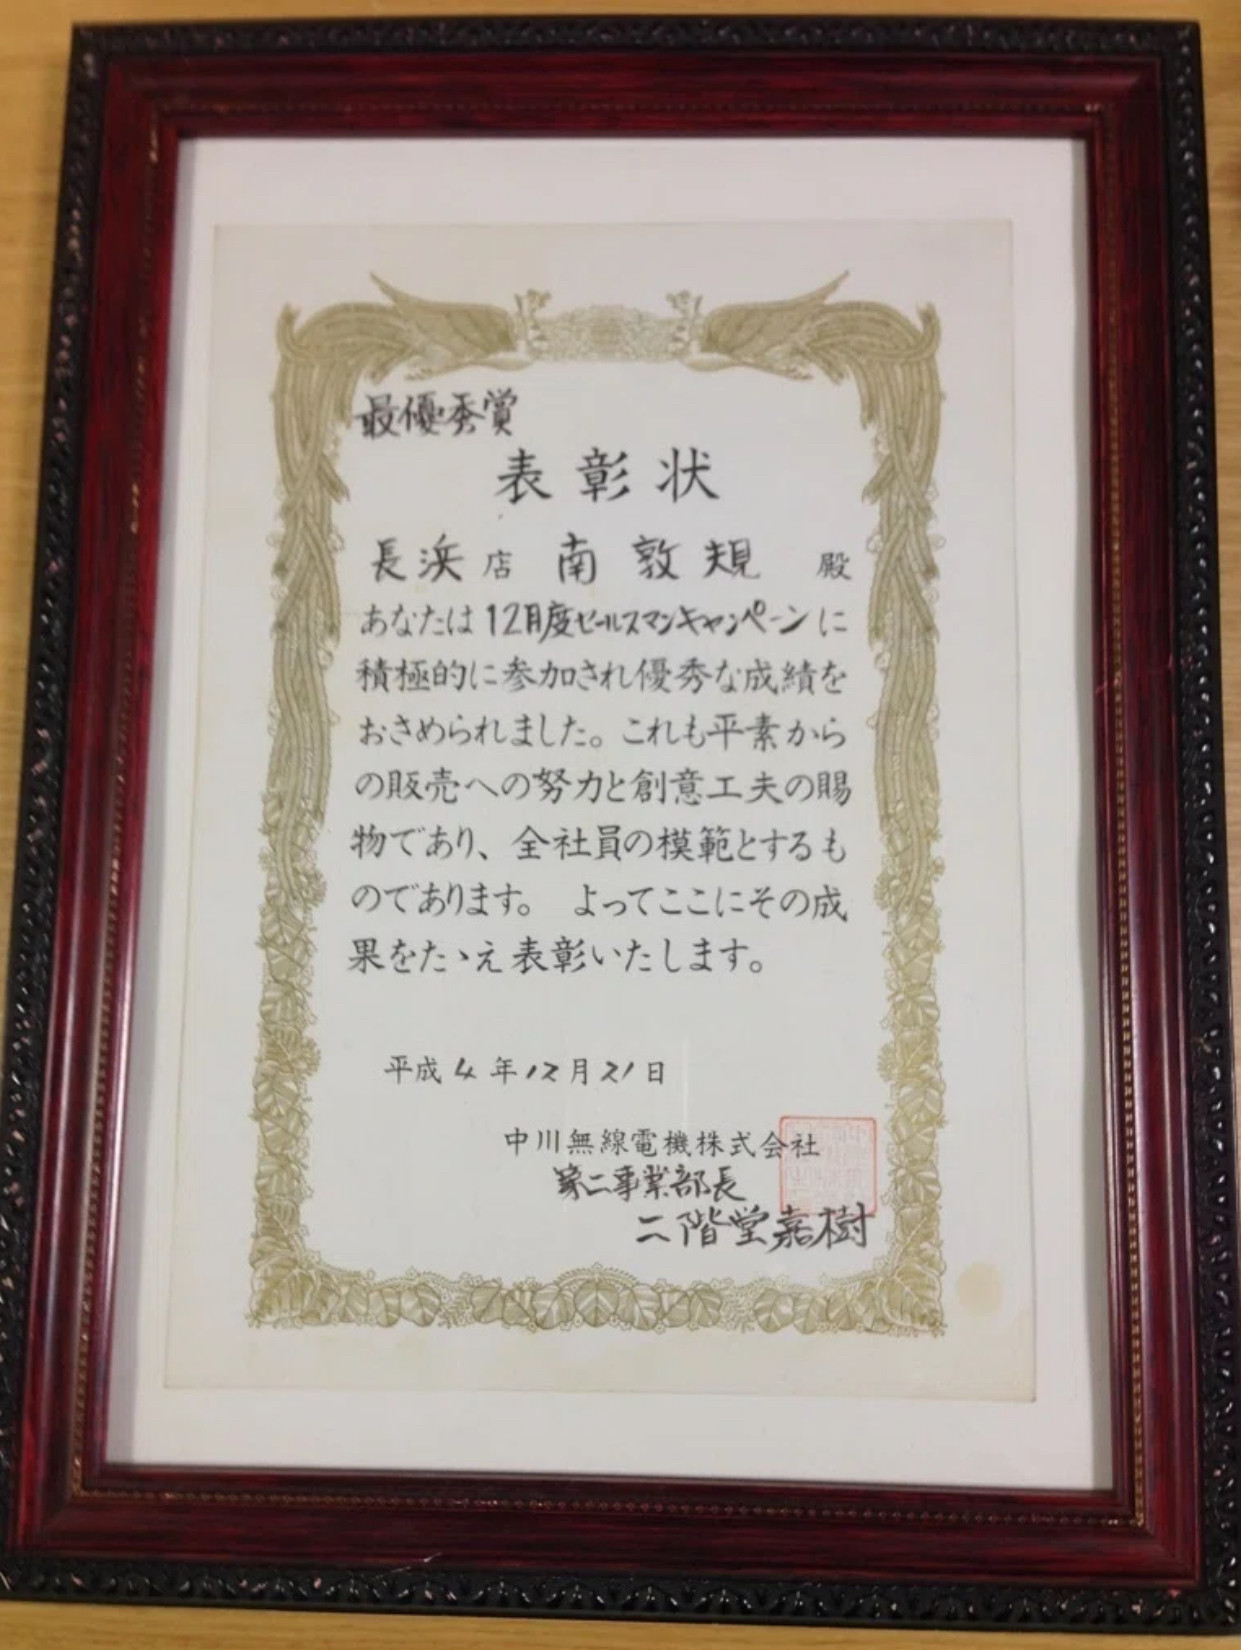 最優秀賞
表彰状
長浜店 南敦規 殿
あなたは12月度セールスマンキャンペーンに
積極的に参加され優秀な成績を
おさめられました。これも平素から
の販売への努力と創意工夫の賜
物であり、全社員の模範とするも
のであります。 よってここにその成
果をたゝえ表彰いたします。
平成4年12月21日
中川無線電機株式会社
第二事業部長
二階堂嘉樹